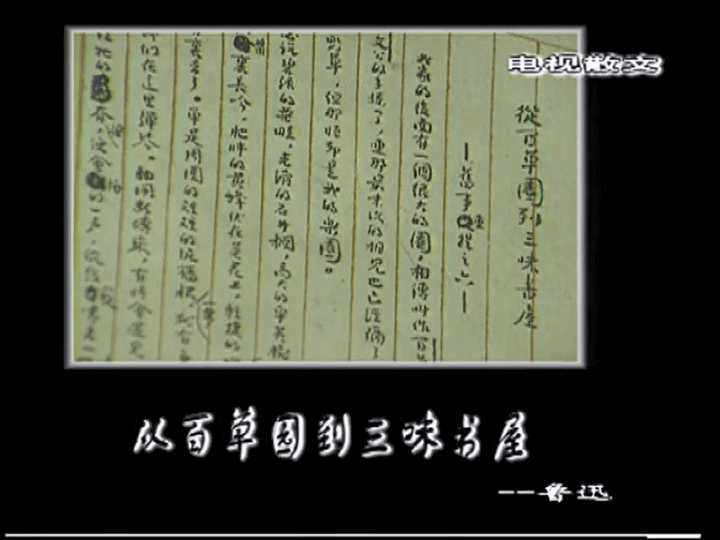 电视散文
從百草園到三味書屋
—舊事重提之六—
我家的後面有一個很大的園，相傳叫作百
文公的子孫了，連那最末次的相見也已經隔了
野草，但那時卻是我的樂園。
說碧綠的菜畦，光滑的石井欄，高大的皂莢樹
裏長吟，肥胖的黃蜂伏在菜花上，輕捷的
裏去了。單是周圍的短短的泥牆根，就有
蟀們在這里彈琴。翻開斷磚來，有時會遇見
住牠的脊，便會拍的一聲，從後
从百草园到三味书屋
--鲁迅